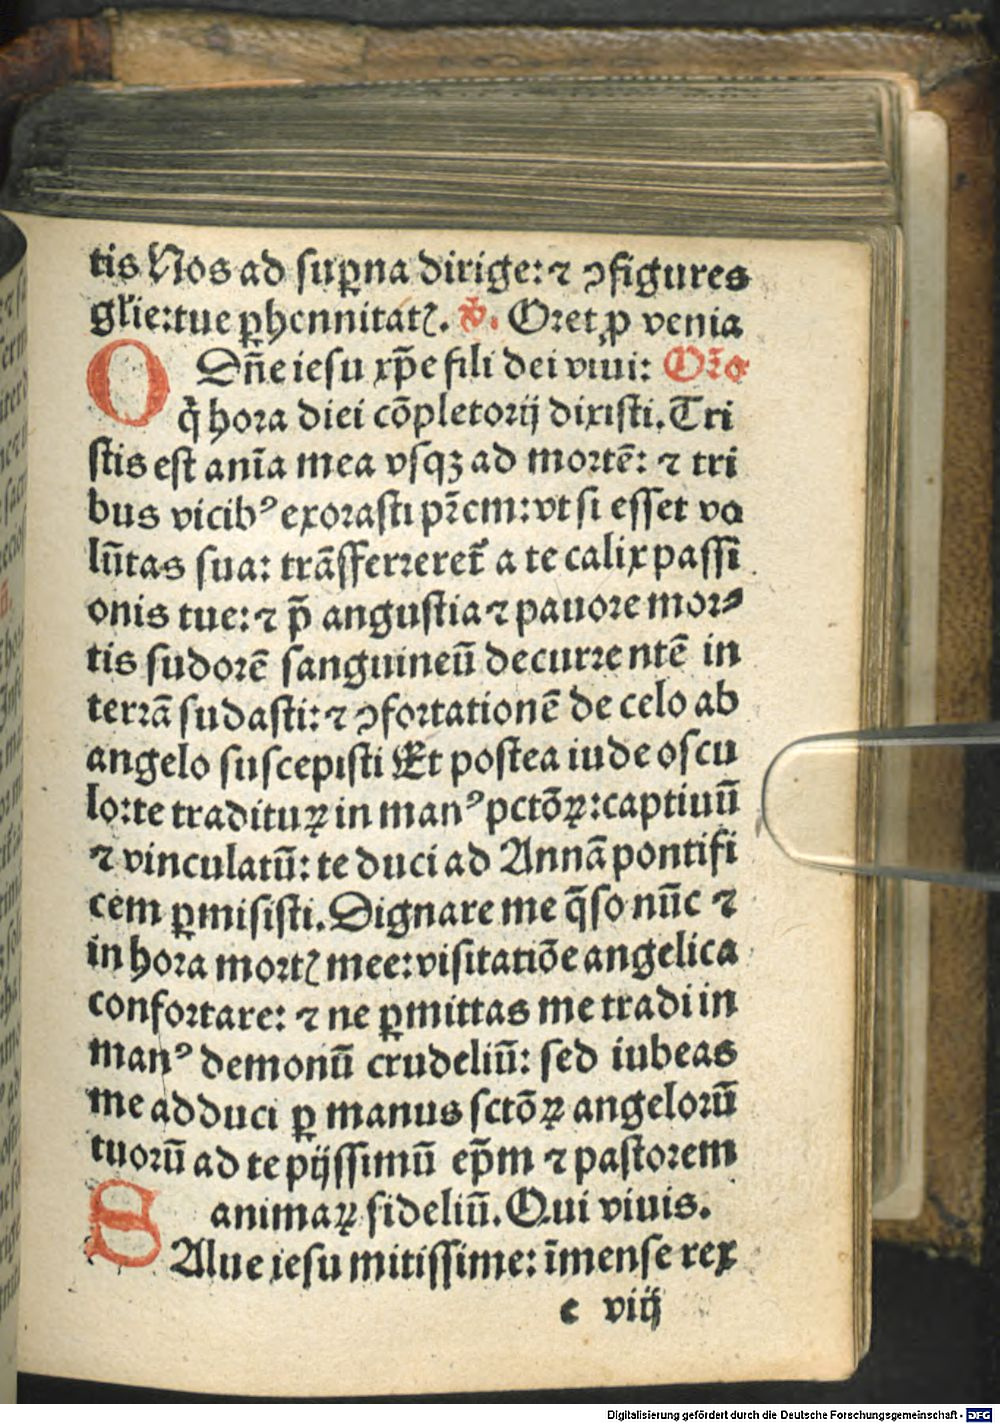 tis Nos ad suꝑna dirige: ⁊ ꝯfigures
gl̄ie: tue ꝑhennitatꝭ. ℣. Oret ꝓ venia
O Dn̄e iesu xp̄e fili dei viui: Orō
q̄ hora diei cōpletorij dixisti. Tri
stis est anīa mea vsqꝫ ad mortē: ⁊ tri
bus vicibꝰ exorasti pr̄em: vt si esset vo
lūtas sua: trāsferreret᷑ a te calix passi
onis tue: ⁊ p̄ angustia ⁊ pauore mor⸗
tis sudorē sanguineū decurrentē in
terrā sudasti: ⁊ ꝯfortationē de celo ab
angelo suscepisti Et postea iude oscu
lo: te traditurꝝ in manꝰ pctōꝝ: captiuū
⁊ vinculatū: te duci ad Annā pontifi
cem ꝑmisisti. Dignare me q̄so nūc ⁊
in hora mortꝭ mee: visitatiōe angelica
confortare: ⁊ ne ꝑmittas me tradi in
manꝰ demonū crudeliū: sed iubeas
me adduci ꝑ manus sctōꝝ angelorū
tuorū ad te pijssimū ep̄m ⁊ pastorem
animaꝝ fideliū. Qui viuis.
SAlue iesu mitissime: īmense rex
e viij
Digitalisierung gefördert durch die Deutsche Forschungsgemeinschaft - DFG